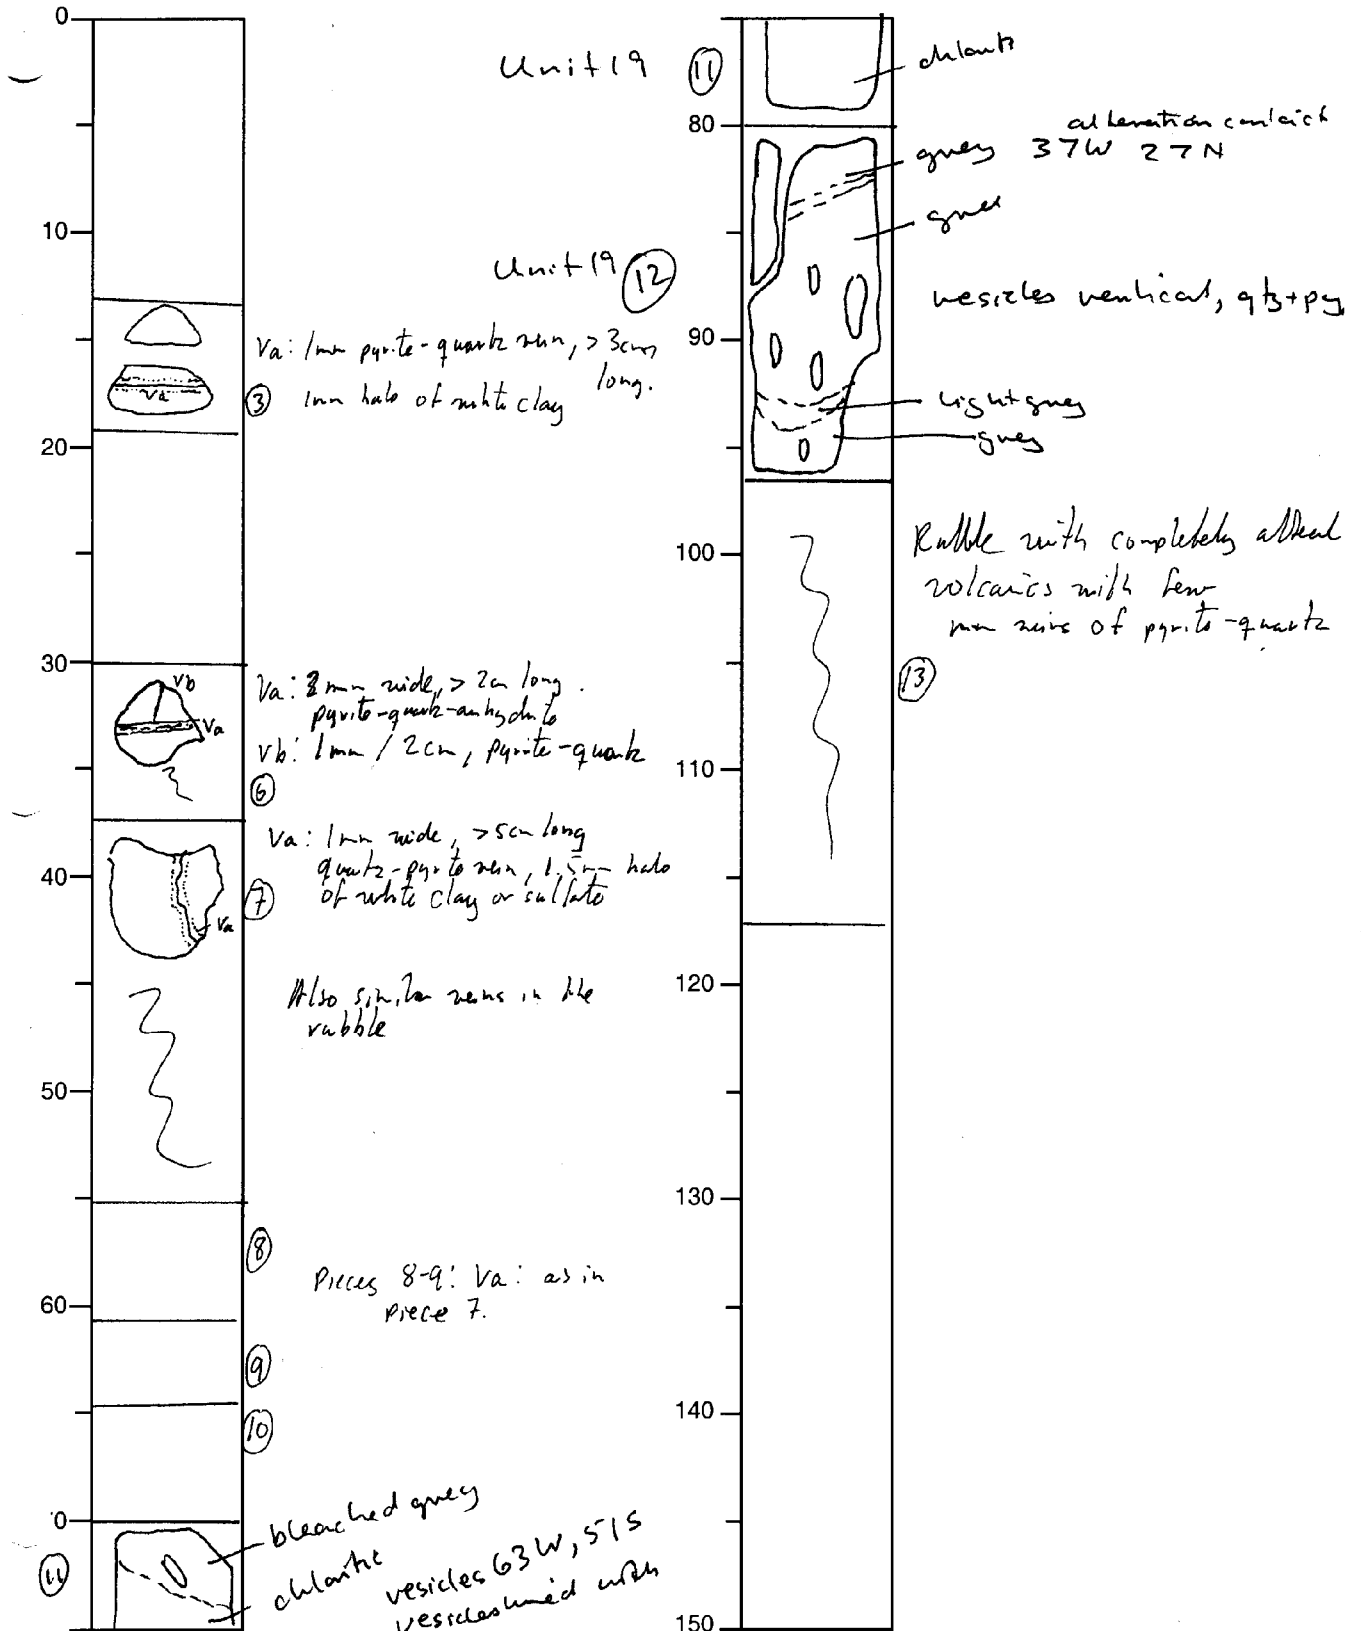 0
10
20
30
40
50
60
0
Va: 1mm pyrite-quartz vein, > 3cm
long.
③ 1mm halo of white clay
Va
Vb
Va
Va: mm wide, > 2cm long.
pyrite-quartz-anhydrite
Vb: 1mm / 2cm, pyrite-quartz
⑥
Va: 1mm wide, >5cm long
quartz-pyrite vein, 1.5mm halo
of white clay or sulfate
⑦
Va
Also similar veins in the
rubble
⑧
Pieces 8-9: Va: as in
piece 7.
⑨
⑩
⑪
bleached grey
chloritic
vesicles 63W, 51S
vesicles lined with
Unit 19 ⑪
chloritic
80
alteration contact
grey 37W 27N
grey
Unit 19 ⑫
vesicles vertical, qtz+py
90
light grey
grey
100
Rubble with completely altered
volcanics with few
mm veins of pyrite-quartz
⑬
110
120
130
140
150